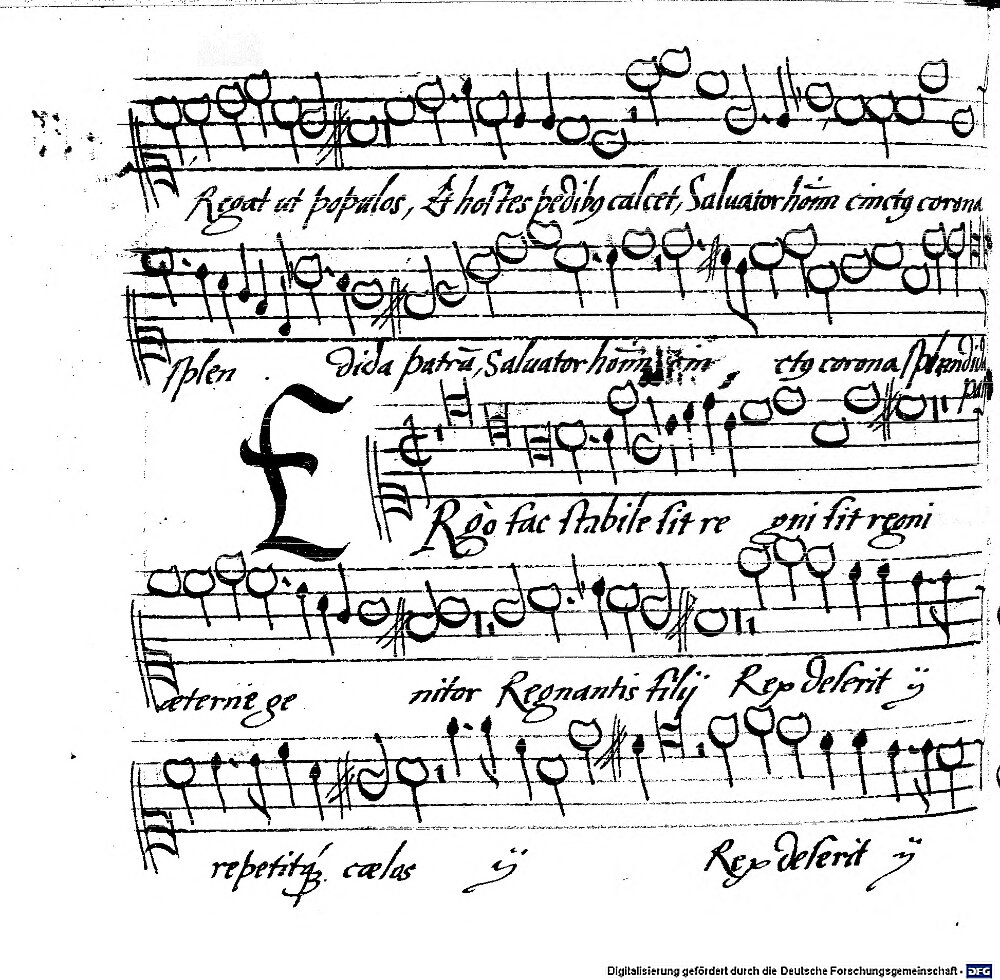 Regat ut populos, Et hostes pedibꝯ calcet, Saluator hom̄ cinctꝯ corona
splen dida patrū, Saluator hom̄ cin ctꝯ corona splendida
pat
E
Rgò fac stabile sit re gni sit regni
æterne ge nitor Regnantis filij Rex deserit ij
repetitqꝫ cælos ij Rex deserit ij
Digitalisierung gefördert durch die Deutsche Forschungsgemeinschaft - DFG